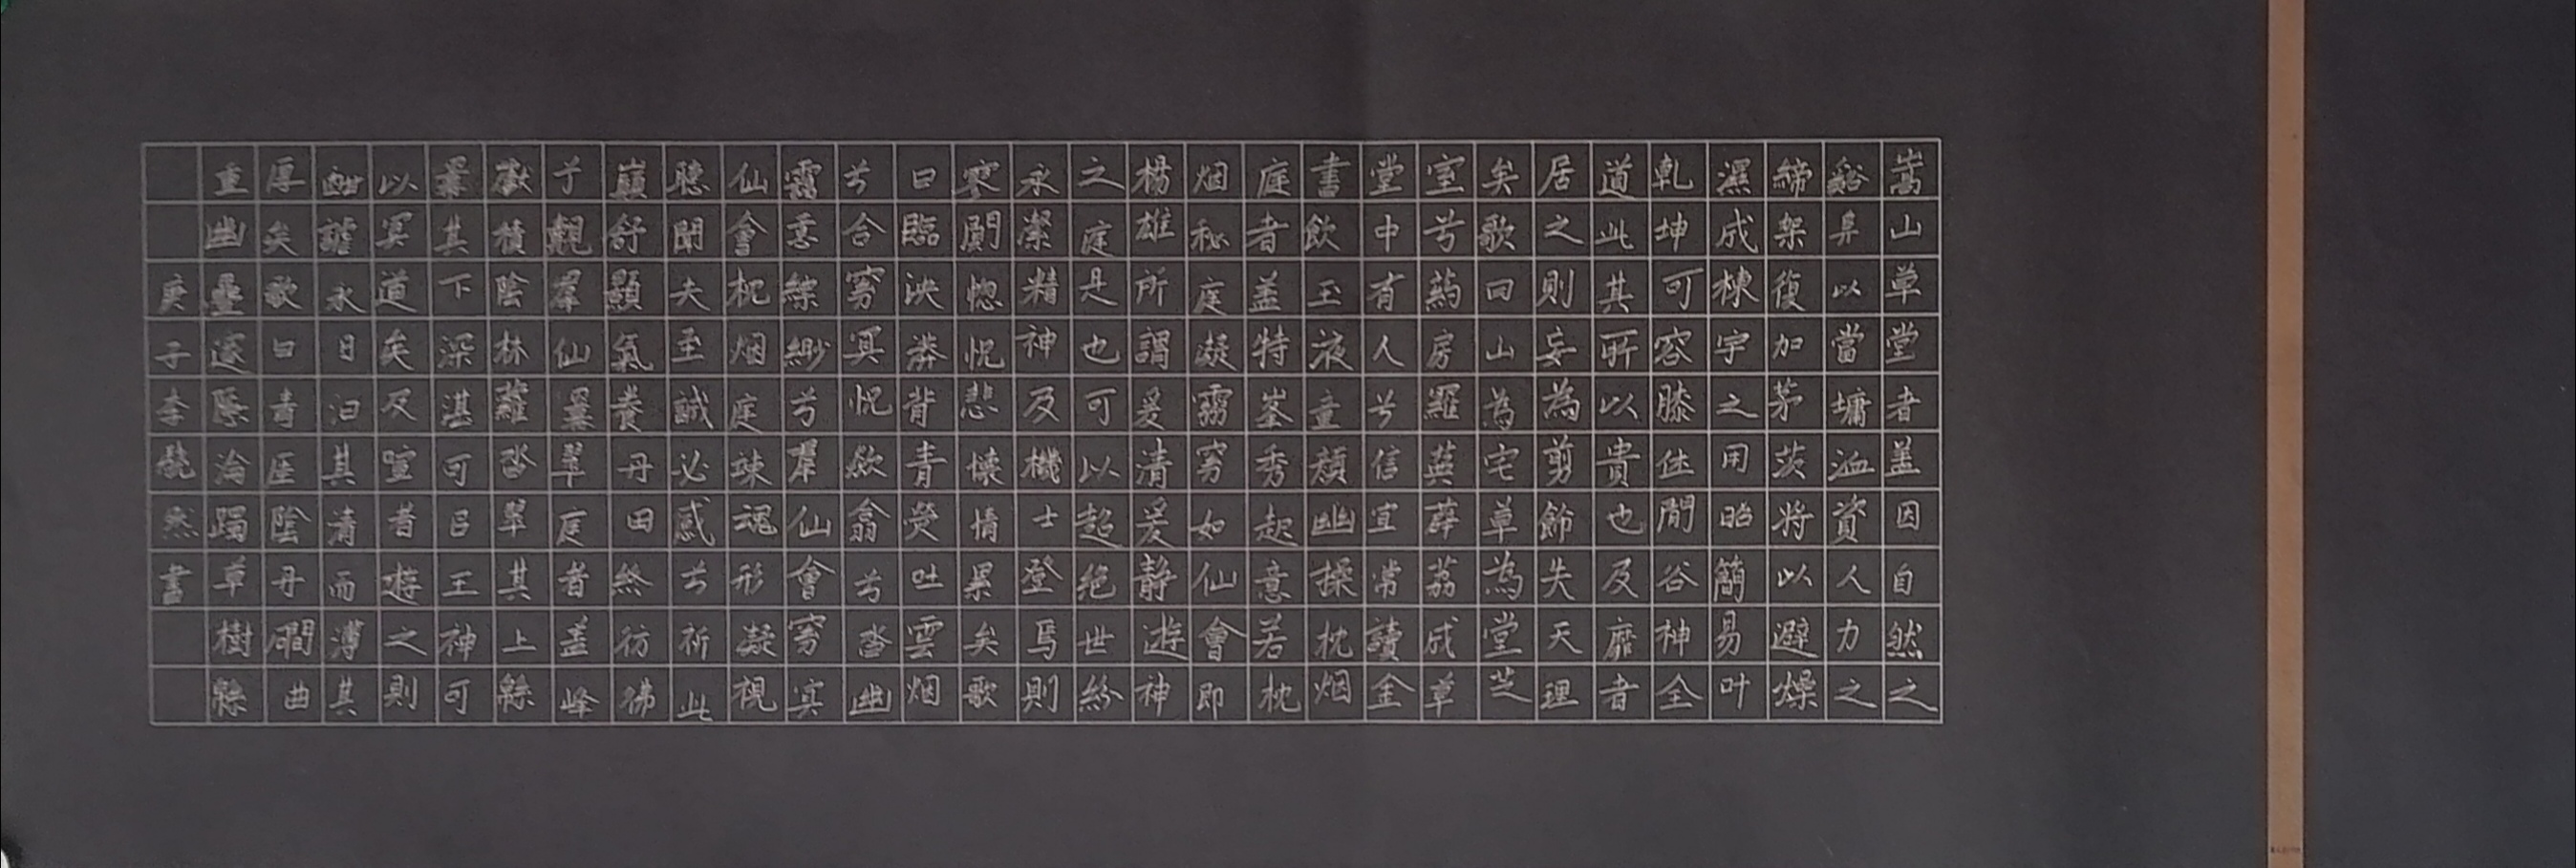 嵩山草堂者盖因自然之
谿阜以當墉洫資人力之
締架復加茅茨將以避燥
濕成棟宇之用昭簡易叶
乾坤可容膝休閒谷神全
道此其所以貴也及靡者
居之則妄為剪飾失天理
矣歌曰山為宅草為堂芝
室兮葯房羅蕪薜荔成草
堂中有人兮信宜常讀金
書飲玉液童顏幽操枕烟
庭者盖特峯秀起意若枕
烟秘庭凝霧窈如仙會即
楊雄所謂爰清爰静遊神
之庭是也可以超絕世紛
永潔精神及機士登焉則
寥闃惚怳悲懷情累矣歌
曰臨泱漭背青熒吐雲烟
兮合窈冥怳欻翕兮沓幽
靄意縹緲兮羣仙會窈冥
仙會枕烟庭竦魂形凝視
聽聞夫至誠必感兮祈此
巔舒顥氣養丹田終彷彿
兮覿羣仙羃翠庭者盖峰
巘積陰林蘿沓翠其上緜
羃其下深湛可㠯王神可
以冥道矣及喧者遊之則
酣謔永日汩其清而薄其
厚矣歌曰青崖陰丹磵曲
重幽疊邃隱淪躅草樹緜
庚子李然書